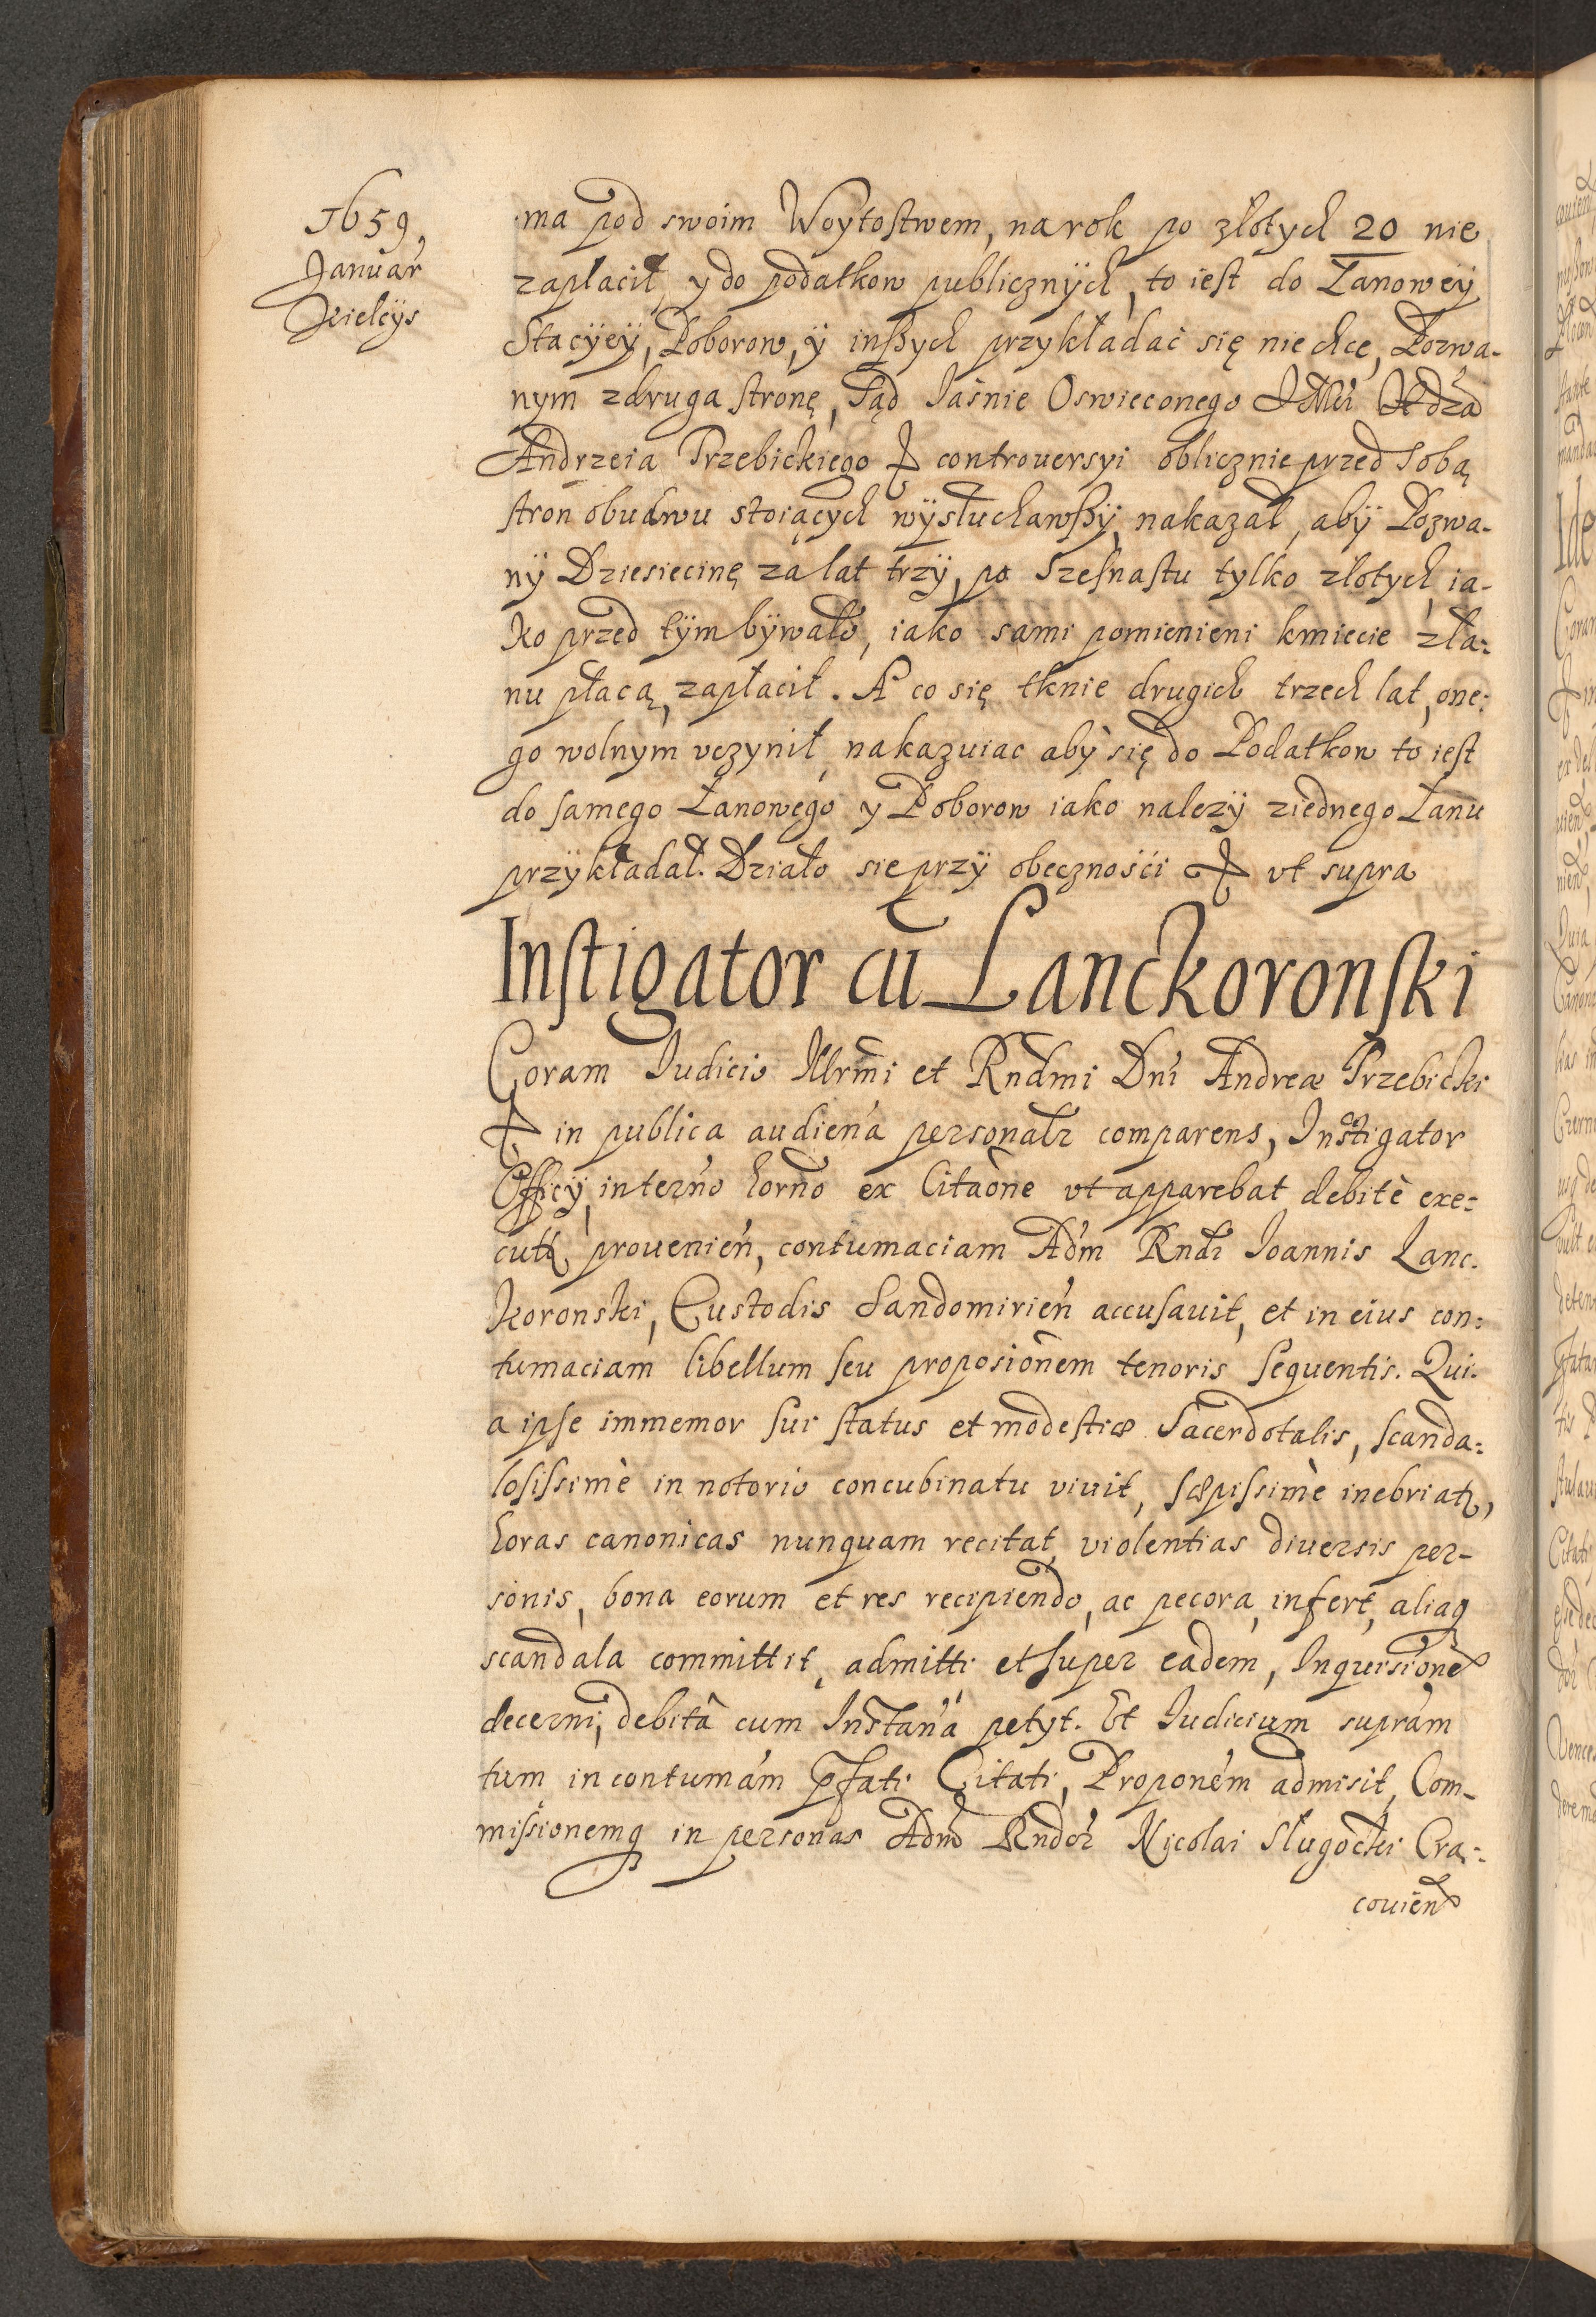 1659,
Januar̄
Kielcÿs
ma pod swoim Woytostwem, na rok po złotych 20 nie
zapłacił, y do podatkow publicznÿch, to iest do Łanowey
Stacÿeÿ, Poborow, ÿ inßych przykładać się nie chce, Pozwa-
nym z druga stronę, Sąd Jaśnie Oswieconego
Andrzeia Trzebickiego & controuersyi oblicznie przed sobą
stron obudwu stoiących wÿsłuchawßÿ, nakazał, abÿ Pozwa-
nÿ Dziesiecinę za lat trzÿ, po Szesnastu tylko złotych, ia-
ko przed tÿm bÿwało, iako sami pomienieni kmiecie z ła:
nu płacą, zapłacił. A co się tknie drugich trzech lat, one:
go wolnym vczynił, nakazuiac aby się do Podatkow to iest
do samego Łanowego y Poborow iako nalezÿ z iednego Łanu
przÿkładał. Działo sie przÿ obecznośći & vt supra
Instigator cū Lanckoronski
Coram Iudicio Illrmi et Rndmi Dni Andreæ Trzebicki
& in publica audien̄a personalr comparens, Instigator
Officÿ, in ter̄no horno ex Citaōne vt apparebat debitè exe:
cutæ prouenien̄, contumaciam Adm Rndi Ioannis Lanc.
koronski, Custodis Sandomirien̄ accusauit, et in eius con:
tumaciam libellum seu proposiōnem tenoris sequentis. Qui.
a ipse immemor sui status et modestiæ Sacerdotalis, scanda:
losissimè in notorio concubinatu viuit, sæpissimè inebriatr,
horas canonicas nunquam recitat, violentias diuersis per-
sonis, bona eorum et res recipiendo, ac pecora, infert, aliaq
scandala committit, admitti et super eadem, Inquisitione
decerni, debitâ cum Instan̄a petyt. Et Iudicium supram
tum in contumam pfati Citati, Proponem admisit, Com-
missionemq in personas Adm Rndor Nicolai Sługocki Cra:
couien